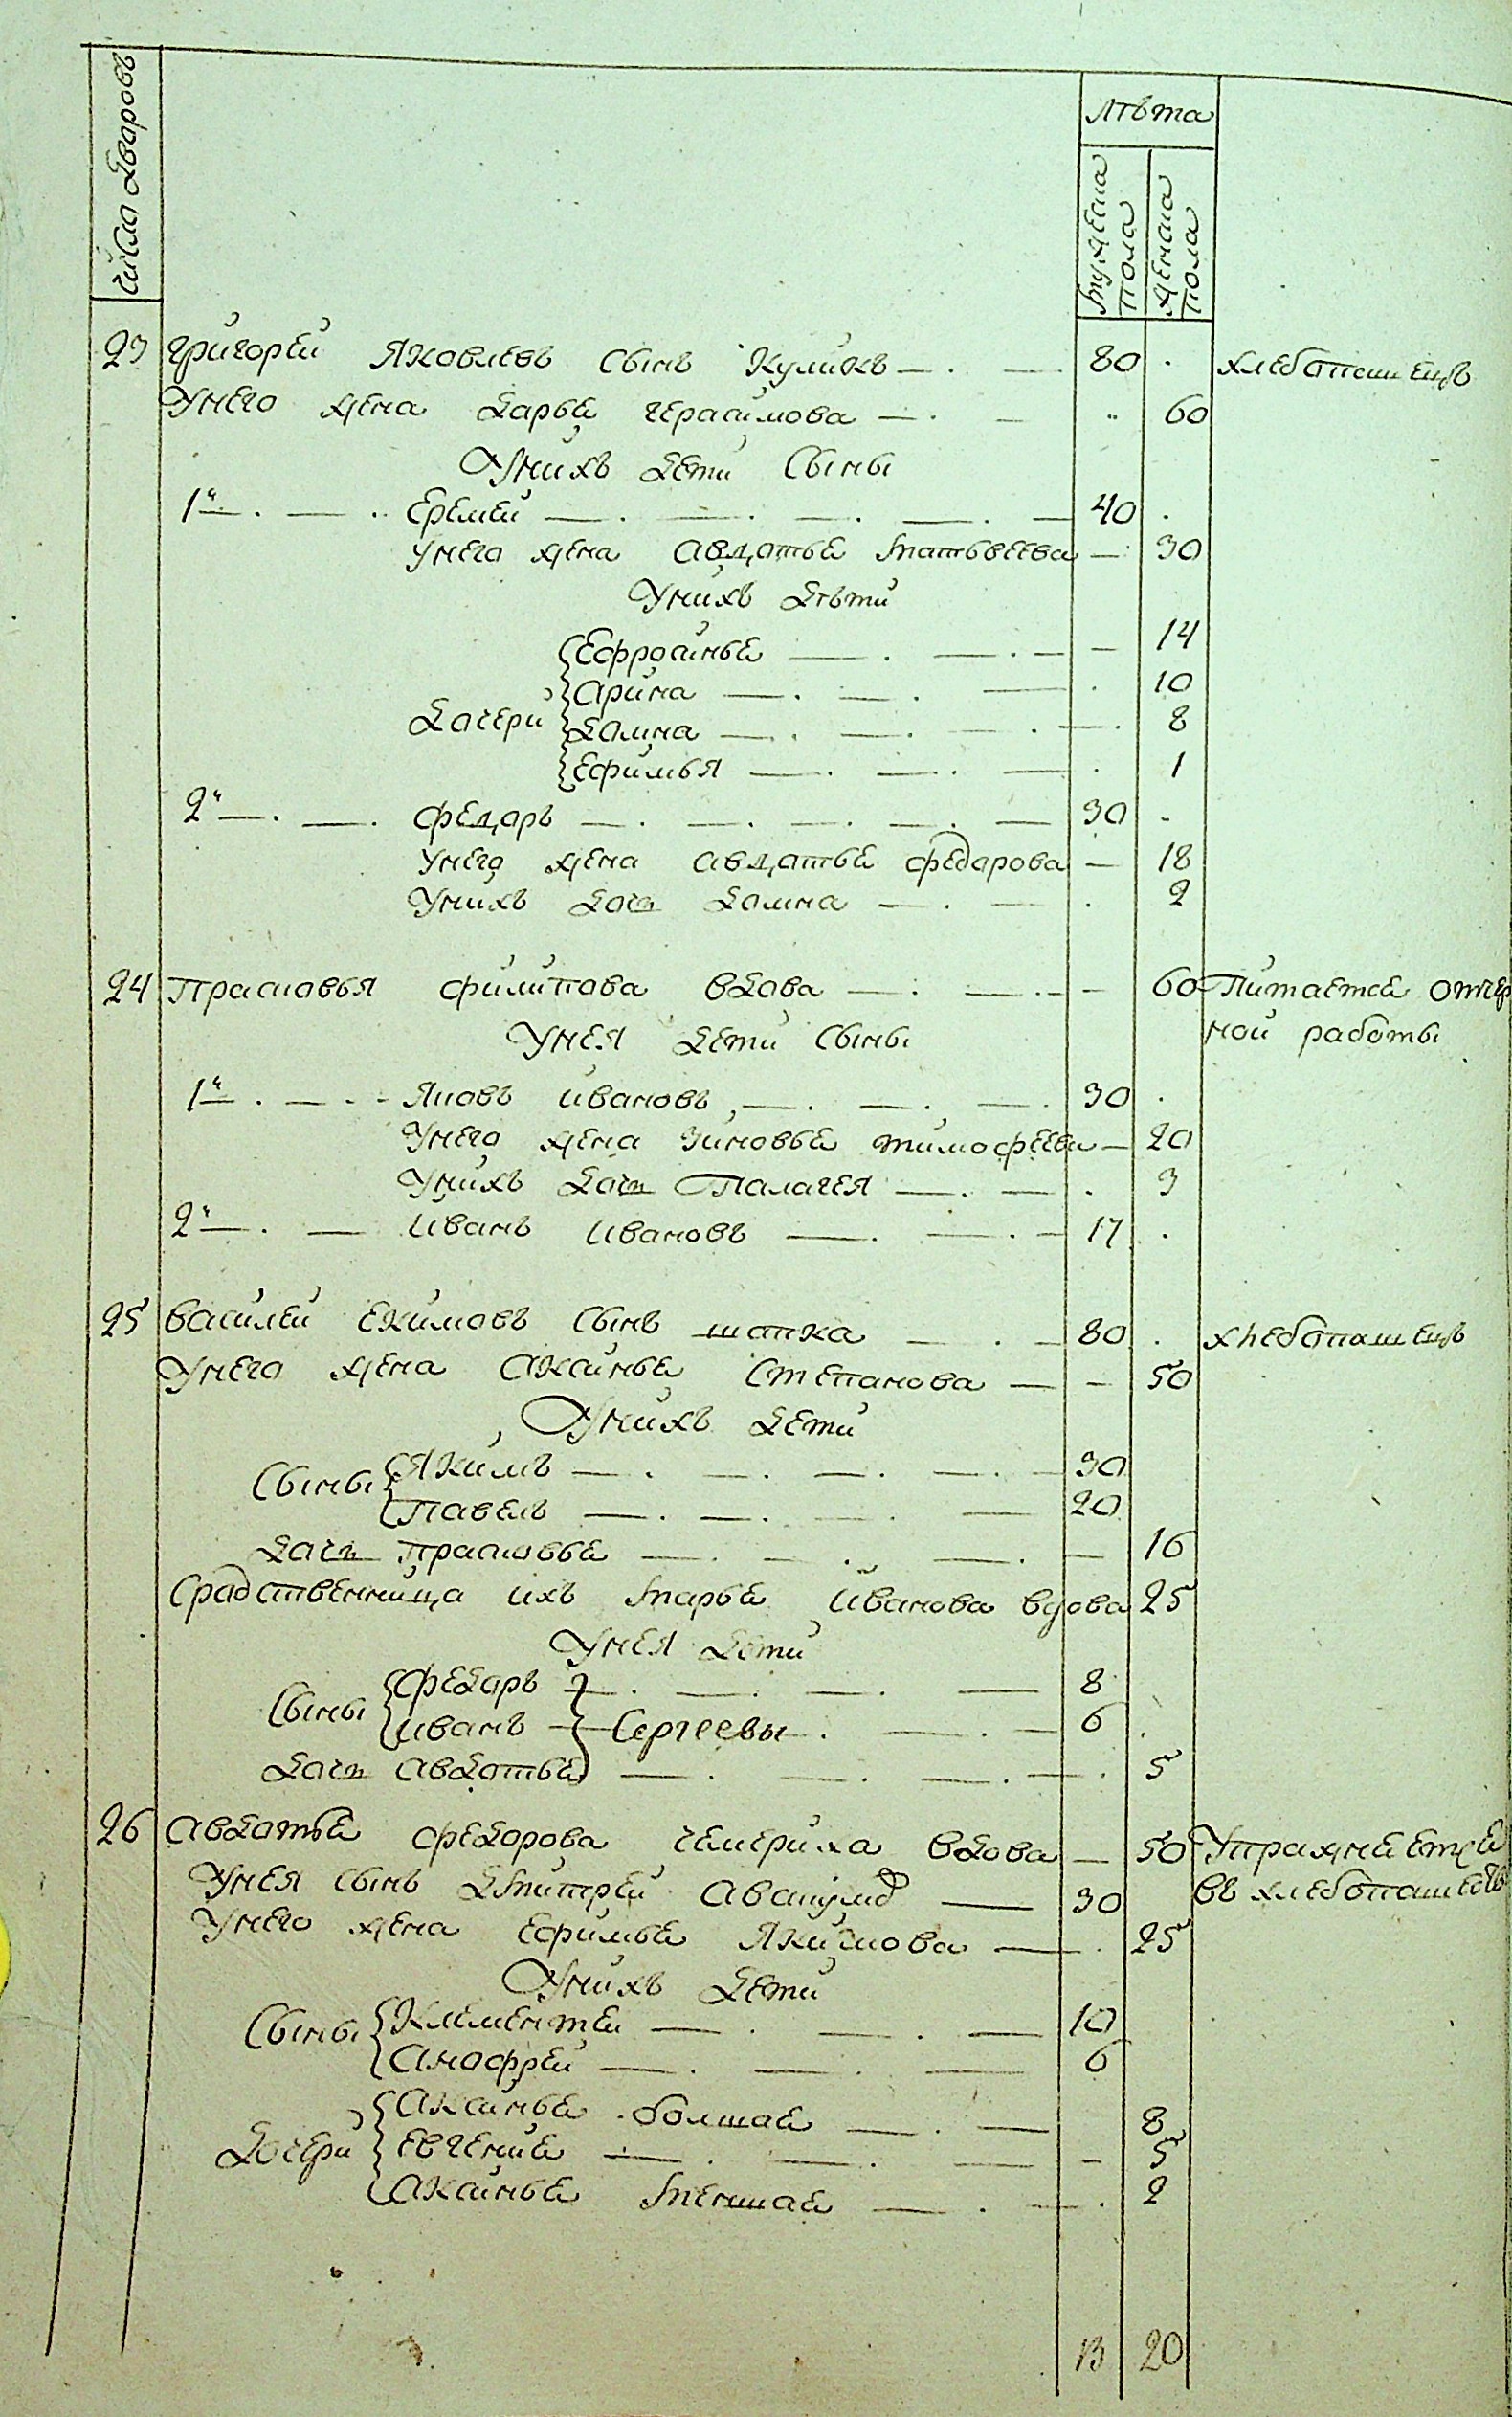 числа дваровъ
лѣта
мужеска пола
женска пола
23 григорей яковлевъ сынъ куликъ 80 хлебопашецъ
унего жена дарье герасимова 60
унихъ дети сыны
1й Еремей 40
унего жена авдотье матьвеева 30
унихъ дѣти
дочери
Ефросинье 14
арина 10
домна 8
ефимья 1
2й федаръ 30
унего жена авдотье федарова 18
унихъ дочь домна 2
24 прасковья филипова вдова 60 Питаетсе отчер
унея дети сыны ной работы
1й яковъ ивановъ 30
унего жена зиновье тимофеева 20
унихъ дочь Палагея 3
2й иванъ ивановъ 17
25 василей екимовъ сынъ шапка 80 хлебопашецъ
унего жена аксинье степанова 50
унихъ дети
сыны
якимъ 30
павелъ 20
дочь прасковье 16
сродственница ихъ марье иванова вдова 25
унея дети
сыны
федаръ 8
иванъ Сергеевы 6
дочь авдотье 5
26 авдотье федорова чемериха вдова 50 Упражнеетсе
унея сынъ дмитрей 30 въ хлебопашестве
унего жена ефимье якимова 25
унихъ дети
сыны
клементей 10
анофрей 6
дочери
аксинье болшае 8
евгение 5
аксинье меншае 2
13 20